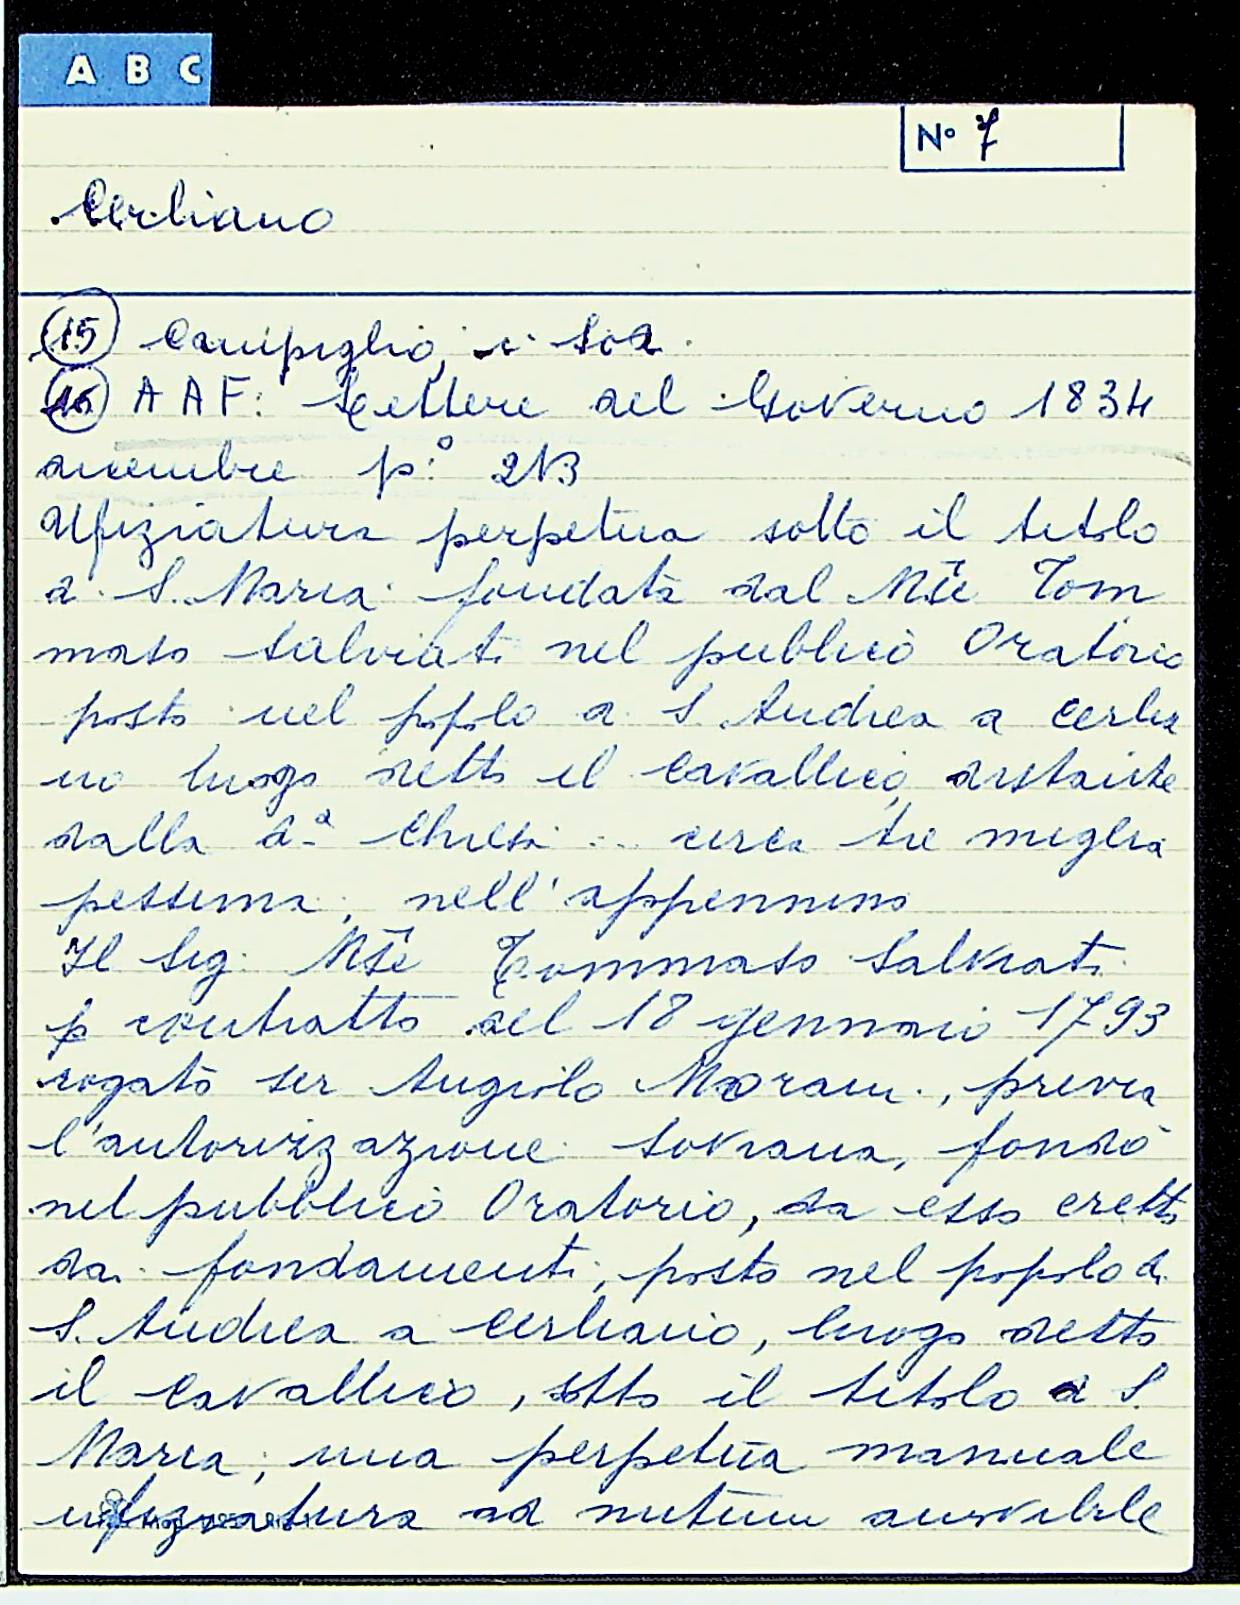 A B C
Nº 7
Cerliano
15 Campiglio, i. Soa.
16 A A F: Lettere del Governo 1834
dicembre p:º 213
Ufiziatura perpetua sotto il titolo
di S. Maria fondata dal Mse Tom
maso Salviati nel publico Oratorio
posto nel popolo di S. Andrea a Cerlia
no luogo detto il Cavallico, distante
dalla d.ª Chiesa circa tre miglia
pessima, nell'appennino
Il Sig: Mse Tommaso Salviati
p contratto del 18 gennaio 1793
rogato ser Angiolo Morani, previa
l'autorizzazione sovrana, fondò
nel pubblico Oratorio, da esso eretto
dai fondamenti, posto nel popolo di
S. Andrea a Cerliano, luogo detto
il Cavallico, sotto il titolo di S.
Maria, una perpetua manuale
ufiziatura ad nutum amovibile